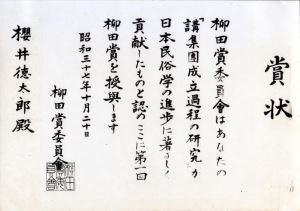 賞状
柳田賞委員會はあなたの
「講集團成立過程の研究」が
日本民俗学の進歩に著しく
貢献したものと認めここに第一回
柳田賞を授與します
昭和三十七年十月二十日
柳田賞委員會
櫻井德太郎殿